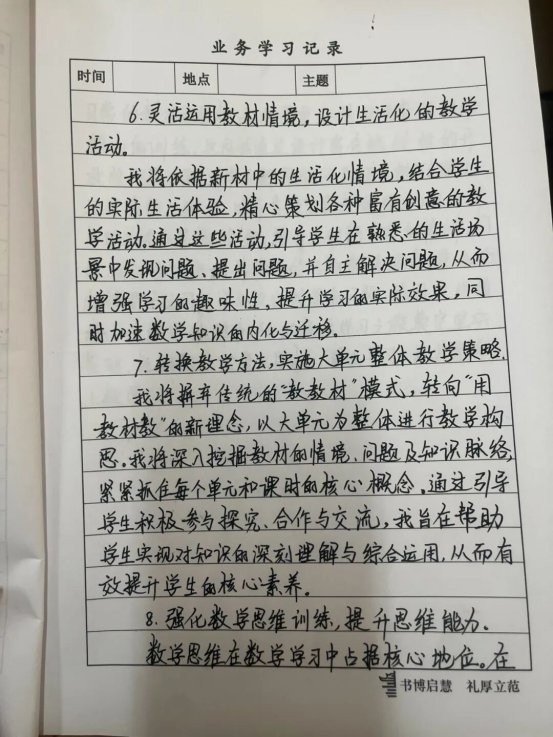 业务学习记录
时间 地点 主题
6.灵活运用教材情境，设计生活化的教学
活动。
我将依据新材中的生活化情境，结合学生
的实际生活体验，精心策划各种富有创意的教
学活动。通过这些活动，引导学生在熟悉的生活场
景中发现问题、提出问题，并自主解决问题，从而
增强学习的趣味性，提升学习的实际效果，同
时加速数学知识的内化与迁移。
7.转换教学方法，实施大单元整体教学策略。
我将摒弃传统的“教教材”模式，转向“用
教材教”的新理念，以大单元为整体进行教学构
思。我将深入挖掘教材的情境、问题及知识脉络，
紧紧抓住每个单元和课时的核心概念。通过引导
学生积极参与探究、合作与交流，我旨在帮助
学生实现对知识的深刻理解与综合运用，从而有
效提升学生的核心素养。
8.强化数学思维训练，提升思维能力。
数学思维在数学学习中占据核心地位。在
书博启慧 礼厚立范